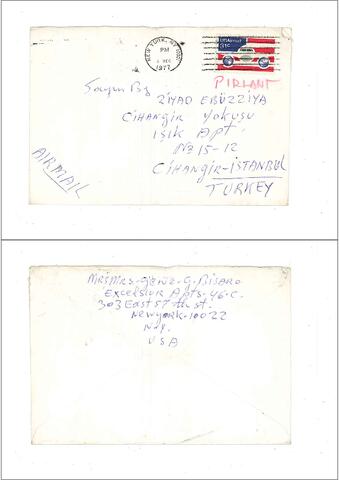 NEW YORK, NY
PM
1977
USAirmail
31c
PIRLANT
Sayın Bay
ZİYAD EBÜZZİYA
CİHANGİR Yokuşu
IŞIK Apt.
No 15-12
CİHANGİR-İSTANBUL
TURKEY
AIRMAIL
G. BISARO
EXCELSIOR Apts. 46-C.
303 East 57 th. st.
Newyork-10022
N.Y.
USA